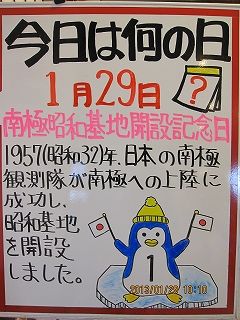 今日は何の日
?
1月29日
南極昭和基地開設記念日
1957(昭和32)年、日本の南極
観測隊が南極への上陸に
成功し、
昭和基地
を開設
しました。
1